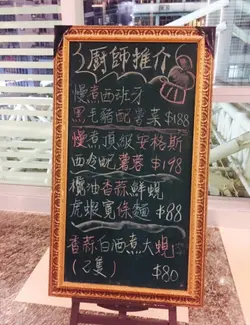 廚師推介
慢煮西班牙
黑毛豬配薯菜 $188
慢煮頂級安格斯
西冷配薯蓉 $198
欖油香蒜鮮蜆
虎蝦寬條麵 $88
香蒜白酒煮大蜆
(2隻) $80